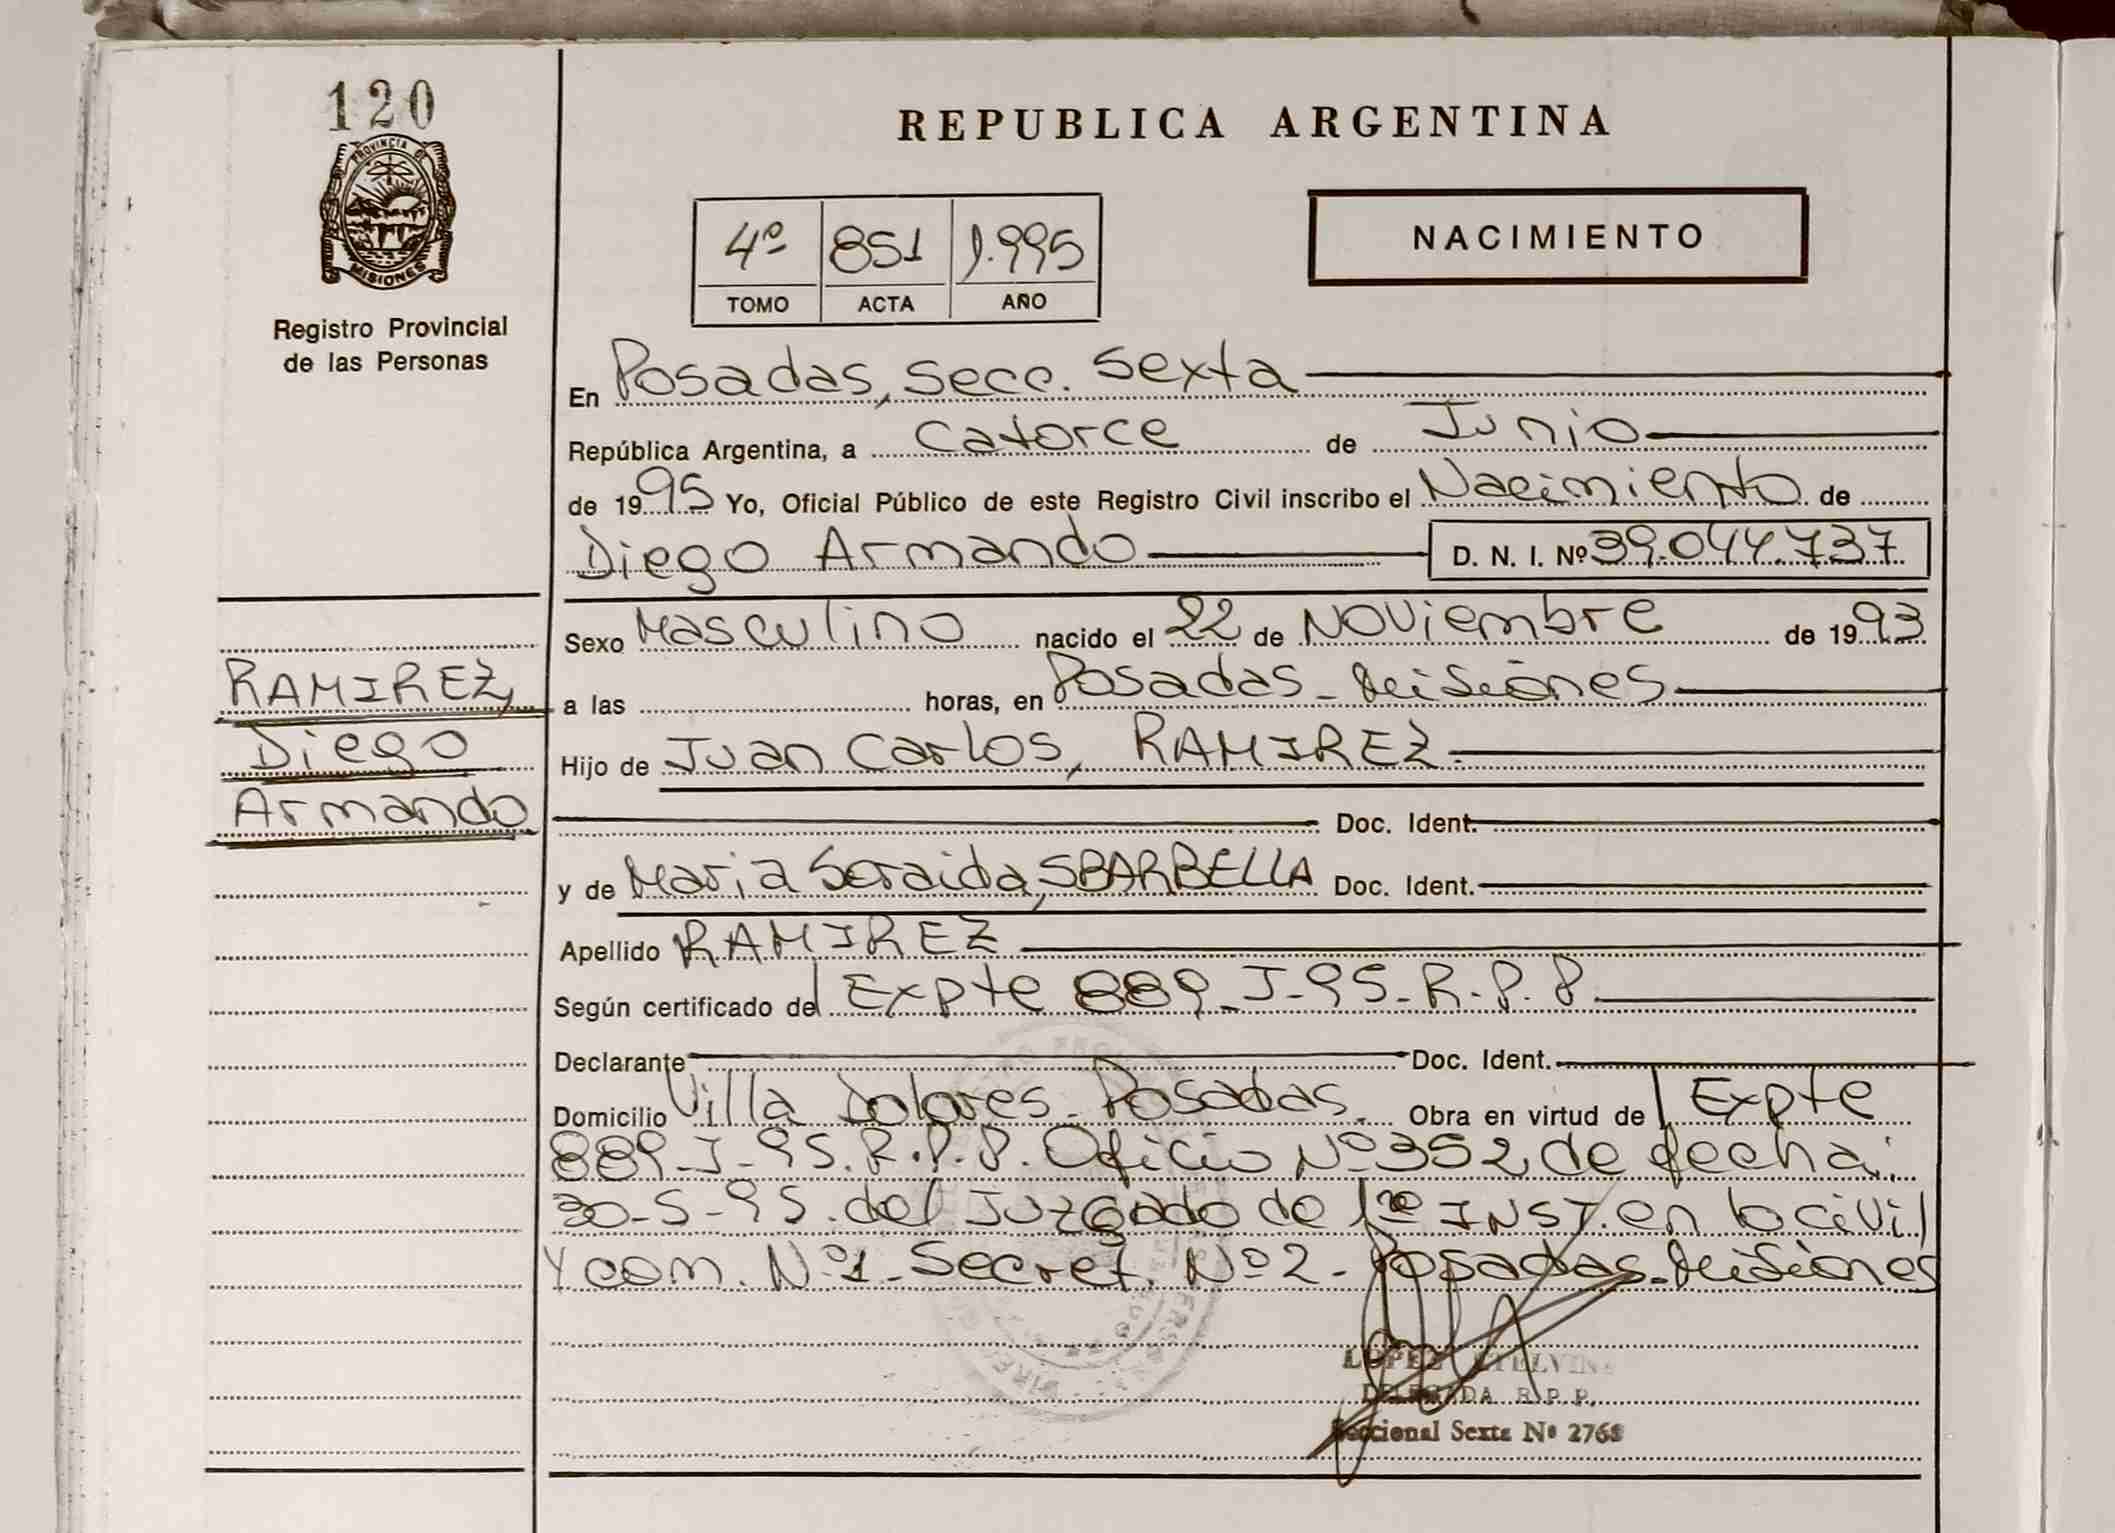 120
PROVINCIA DE
MISIONES
Registro Provincial
de las Personas
REPUBLICA ARGENTINA
4º 851 1.995
TOMO ACTA AÑO
NACIMIENTO
En Posadas, Secc. Sexta
República Argentina, a Catorce de Junio
de 1995 Yo, Oficial Público de este Registro Civil inscribo el Nacimiento de
Diego Armando D. N. I. Nº 39.044.737
Sexo Masculino nacido el 22 de Noviembre de 1993
a las horas, en Posadas - Misiones
Hijo de Juan Carlos, RAMIREZ
Doc. Ident.
y de Maria Soraida, SBARBELLA Doc. Ident.
Apellido RAMIREZ
Según certificado del Expte 889-J-95-R.P.P.
Declarante Doc. Ident.
Domicilio Villa Dolores - Posadas. Obra en virtud del Expte
889-J-95.R.P.P. Oficio Nº 352 de fecha:
30-5-95. del Juzgado de 1ra INST. en lo civil
Y com. Nº1 - Secret. Nº 2 - Posadas - Misiones
RAMIREZ,
Diego
Armando
LOPEZ ETELVINA
DELEGADA R.P.P.
Seccional Sexta Nº